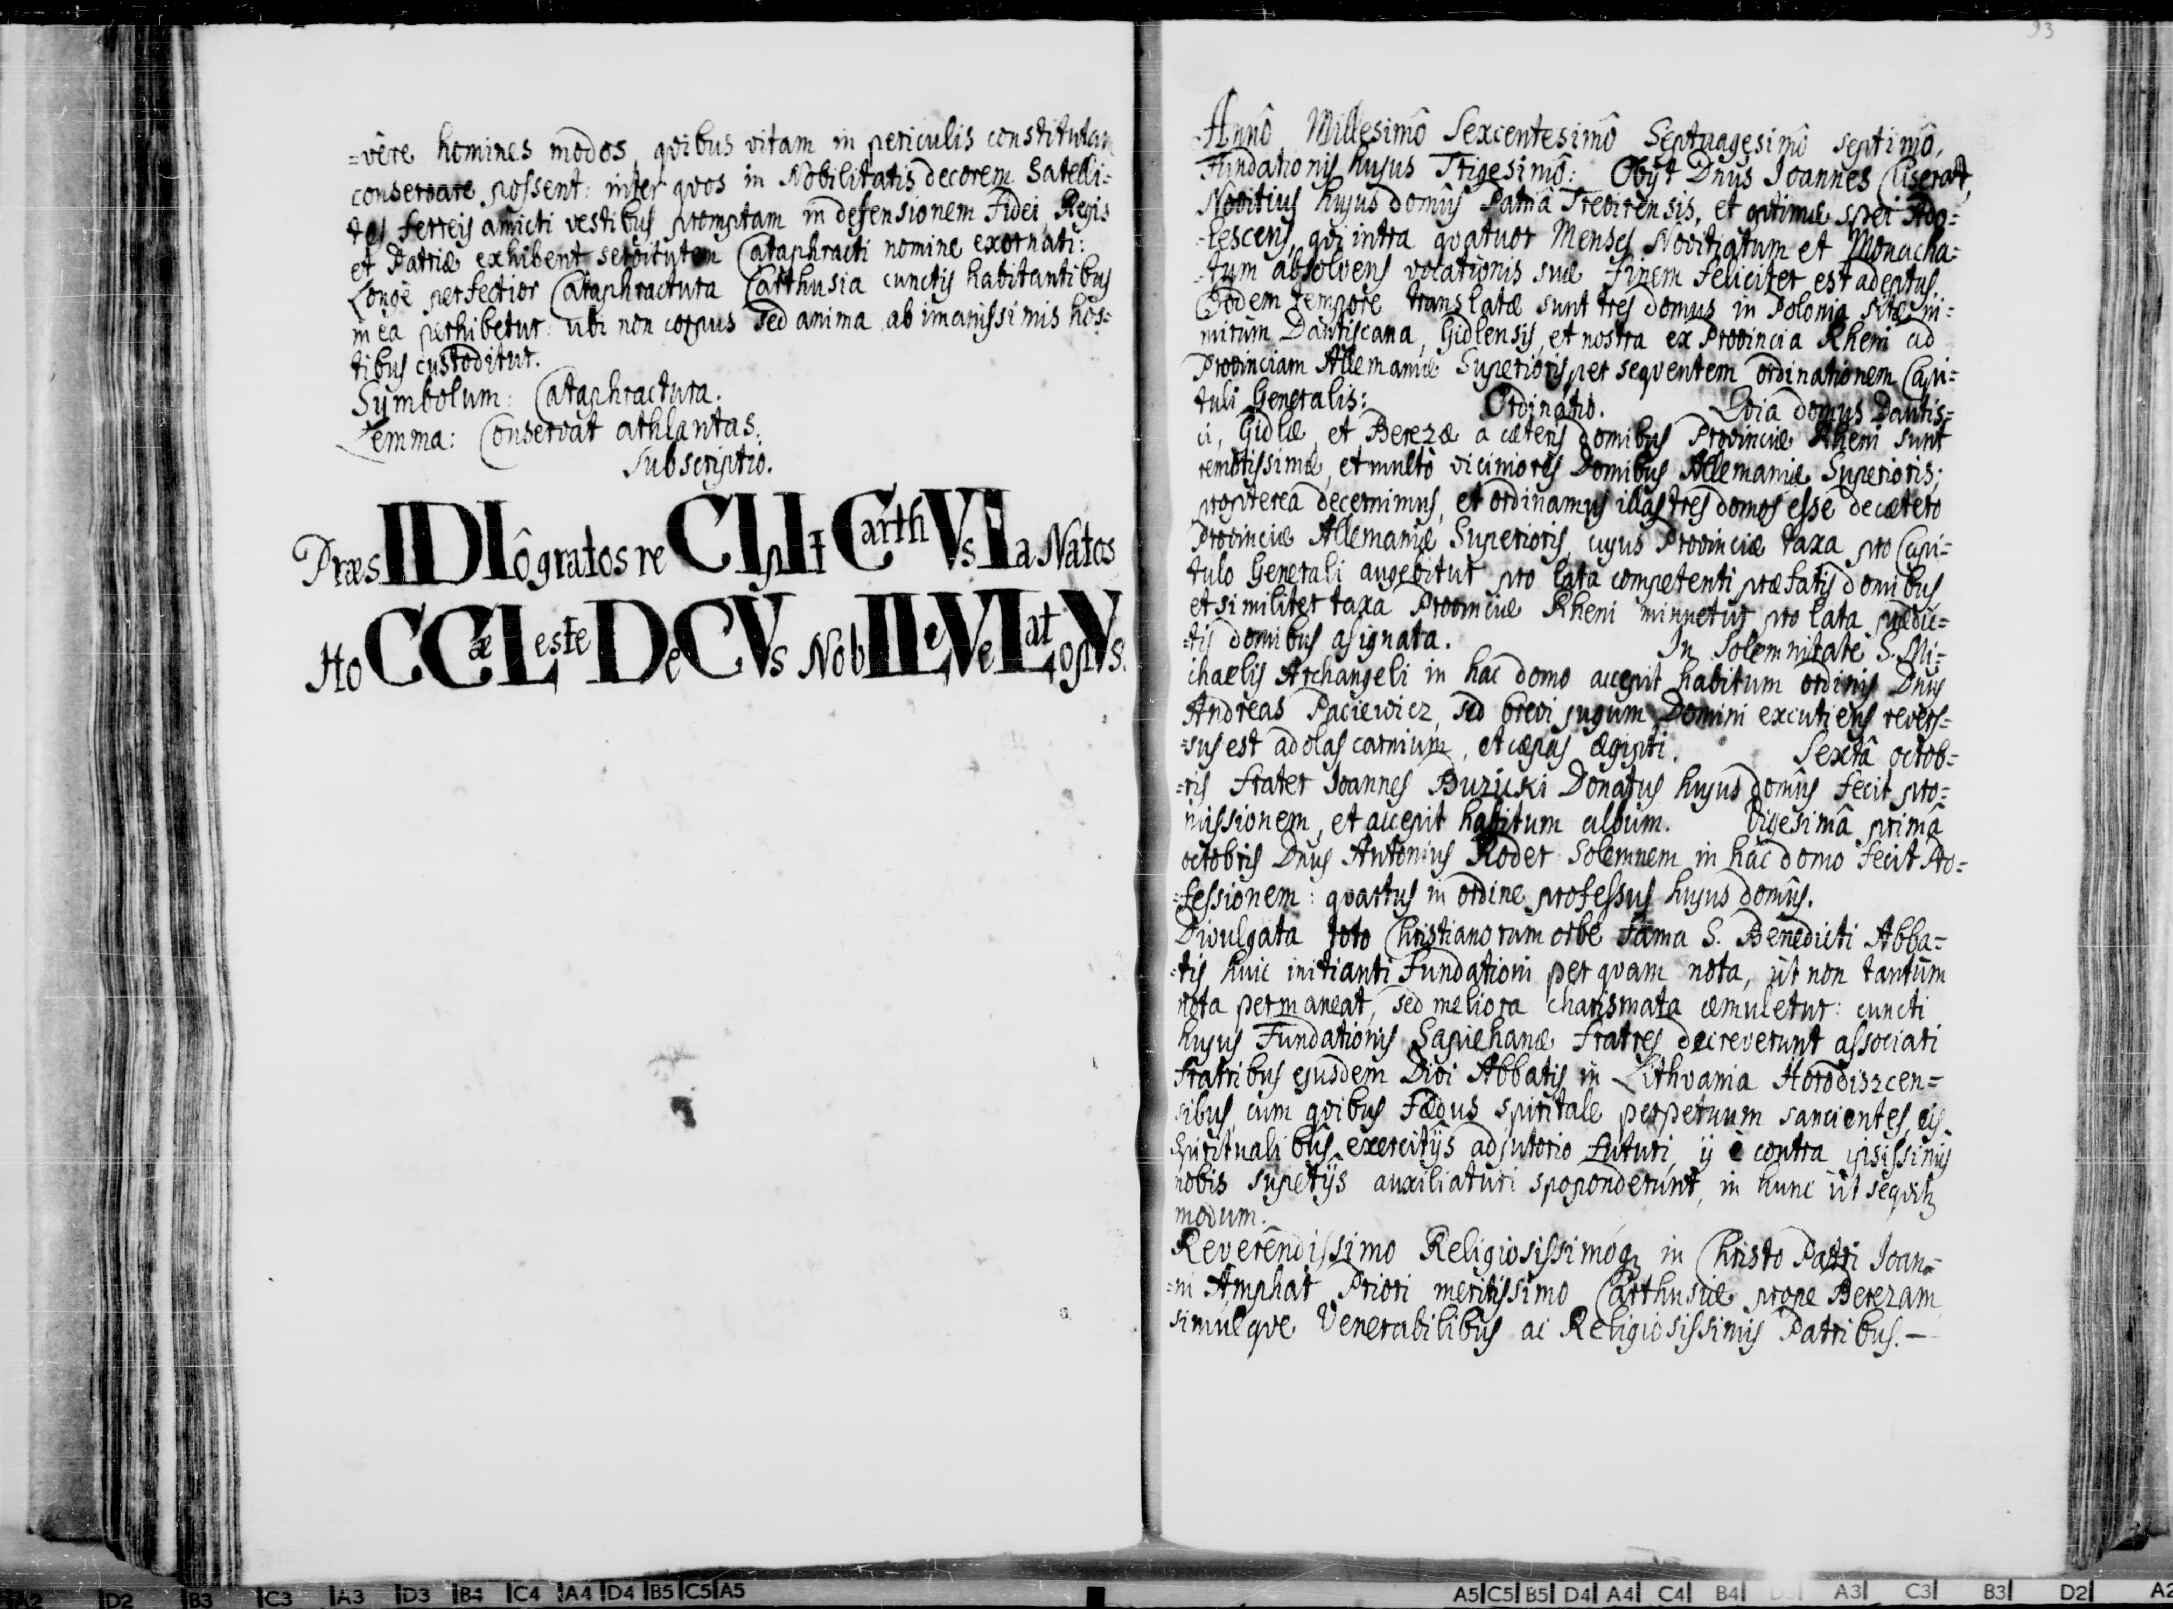 =vêre homines modos, qvibus vitam in periculis constitutam
conservare possent: inter qvos in Nobilitatis decorem Satelli=
tes ferreis amicti vestibus promptam in defensionem Fidei, Regis
et Patriæ exhibent servitutem Cataphracti nomine exornati:
Longè perfectior Cataphractura Carthusia cunctis habitantibus
in ea perhibetur: ubi non corpus sed anima ab imanissimis hos=
tibus custoditur.
Symbolum: Cataphractura.
Lemma: Conservat athlantas.
Subscriptio.
PræsIDIôgratos reCIpIt CarthVsIa Natos
Ho CCæLeste DeCVs NobILeVeLatopVs.
93
Annô Millesimô Sexcentesimô Septuagesimô septimô,
Fundationis hujus Trigesimô: Obijt Dnus Joannes
Novitius hujus domûs Patriâ Trevirensis, et optimæ spei Ado=
=lescens, qvi intra qvatuor Menses Novitiatum et Monacha=
=tum absolvens vocationis suæ finem feliciter est adeptus.
Eodem tempore translatæ sunt tres domus in Polonia sitæ ni=
mirùm Dantiscana, Gidlensis, et nostra ex Provincia Rheni ad
Provinciam Allemaniæ Superioris per seqventem ordinationem Capi=
tuli Generalis: Ordinatio. Qvia domus Dantis=
ci, Gidlæ, et Berezæ a cæteris domibus Provinciæ Rheni sunt
remotissimæ, et multò viciniores Domibus Allemaniæ Superioris;
propterea decernimus, et ordinamus illas tres domos esse de cætero
Provinciæ Allemaniæ Superioris, cujus Provinciæ taxa pro Capi=
tulo Generali augebitur pro lata competenti præfatis domibus
et similiter taxa Provinciæ Rheni minuetur pro lata prædic=
=tis domibus asignata. In Solemnitate S. Mi=
ichaelis Archangeli in hac domo accepit habitum ordinis Dnus
Andreas Paciewicz, sed brevi jugum Domini excutiens rever=
=sus est ad olas carnium, et cæpas ægipti. Sextâ octob=
=ris frater Joannes Buzicki Donatus hujus domûs fecit pro=
missionem, et accepit habitum album. Vigesimâ primâ
octobris Dnus Antonius Roder Solemnem in hac domo fecit Pro=
=fessionem: qvartus in ordine professus hujus domûs.
Divulgata toto Christianorum orbe fama S. Benedicti Abba=
=tis huic initianti Fundationi per qvam nota, ut non tantùm
nota permaneat, sed meliora charismata æmuletur: cuncti
hujus Fundationis Sapiehanæ fratres decreverunt associari
fratribus ejusdem Divi Abbatis in Lithvania Horodiszcen=
sibus, cum qvibus fædus spiritale perpetuum sancientes, eis
Spiritualibus exercitijs adjutorio futuri, ij è contra ipsissimis
nobis supetijs auxiliaturi spoponderunt, in hunc ut seqvitur
modum.
Reverêndissimo Religiosissimóq in Christo Patri Joan=
=ni Amphat Priori meritissimo Carthusiæ prope Berezam
simulqve Venerabilibus ac Religiosissimis Patribus.—